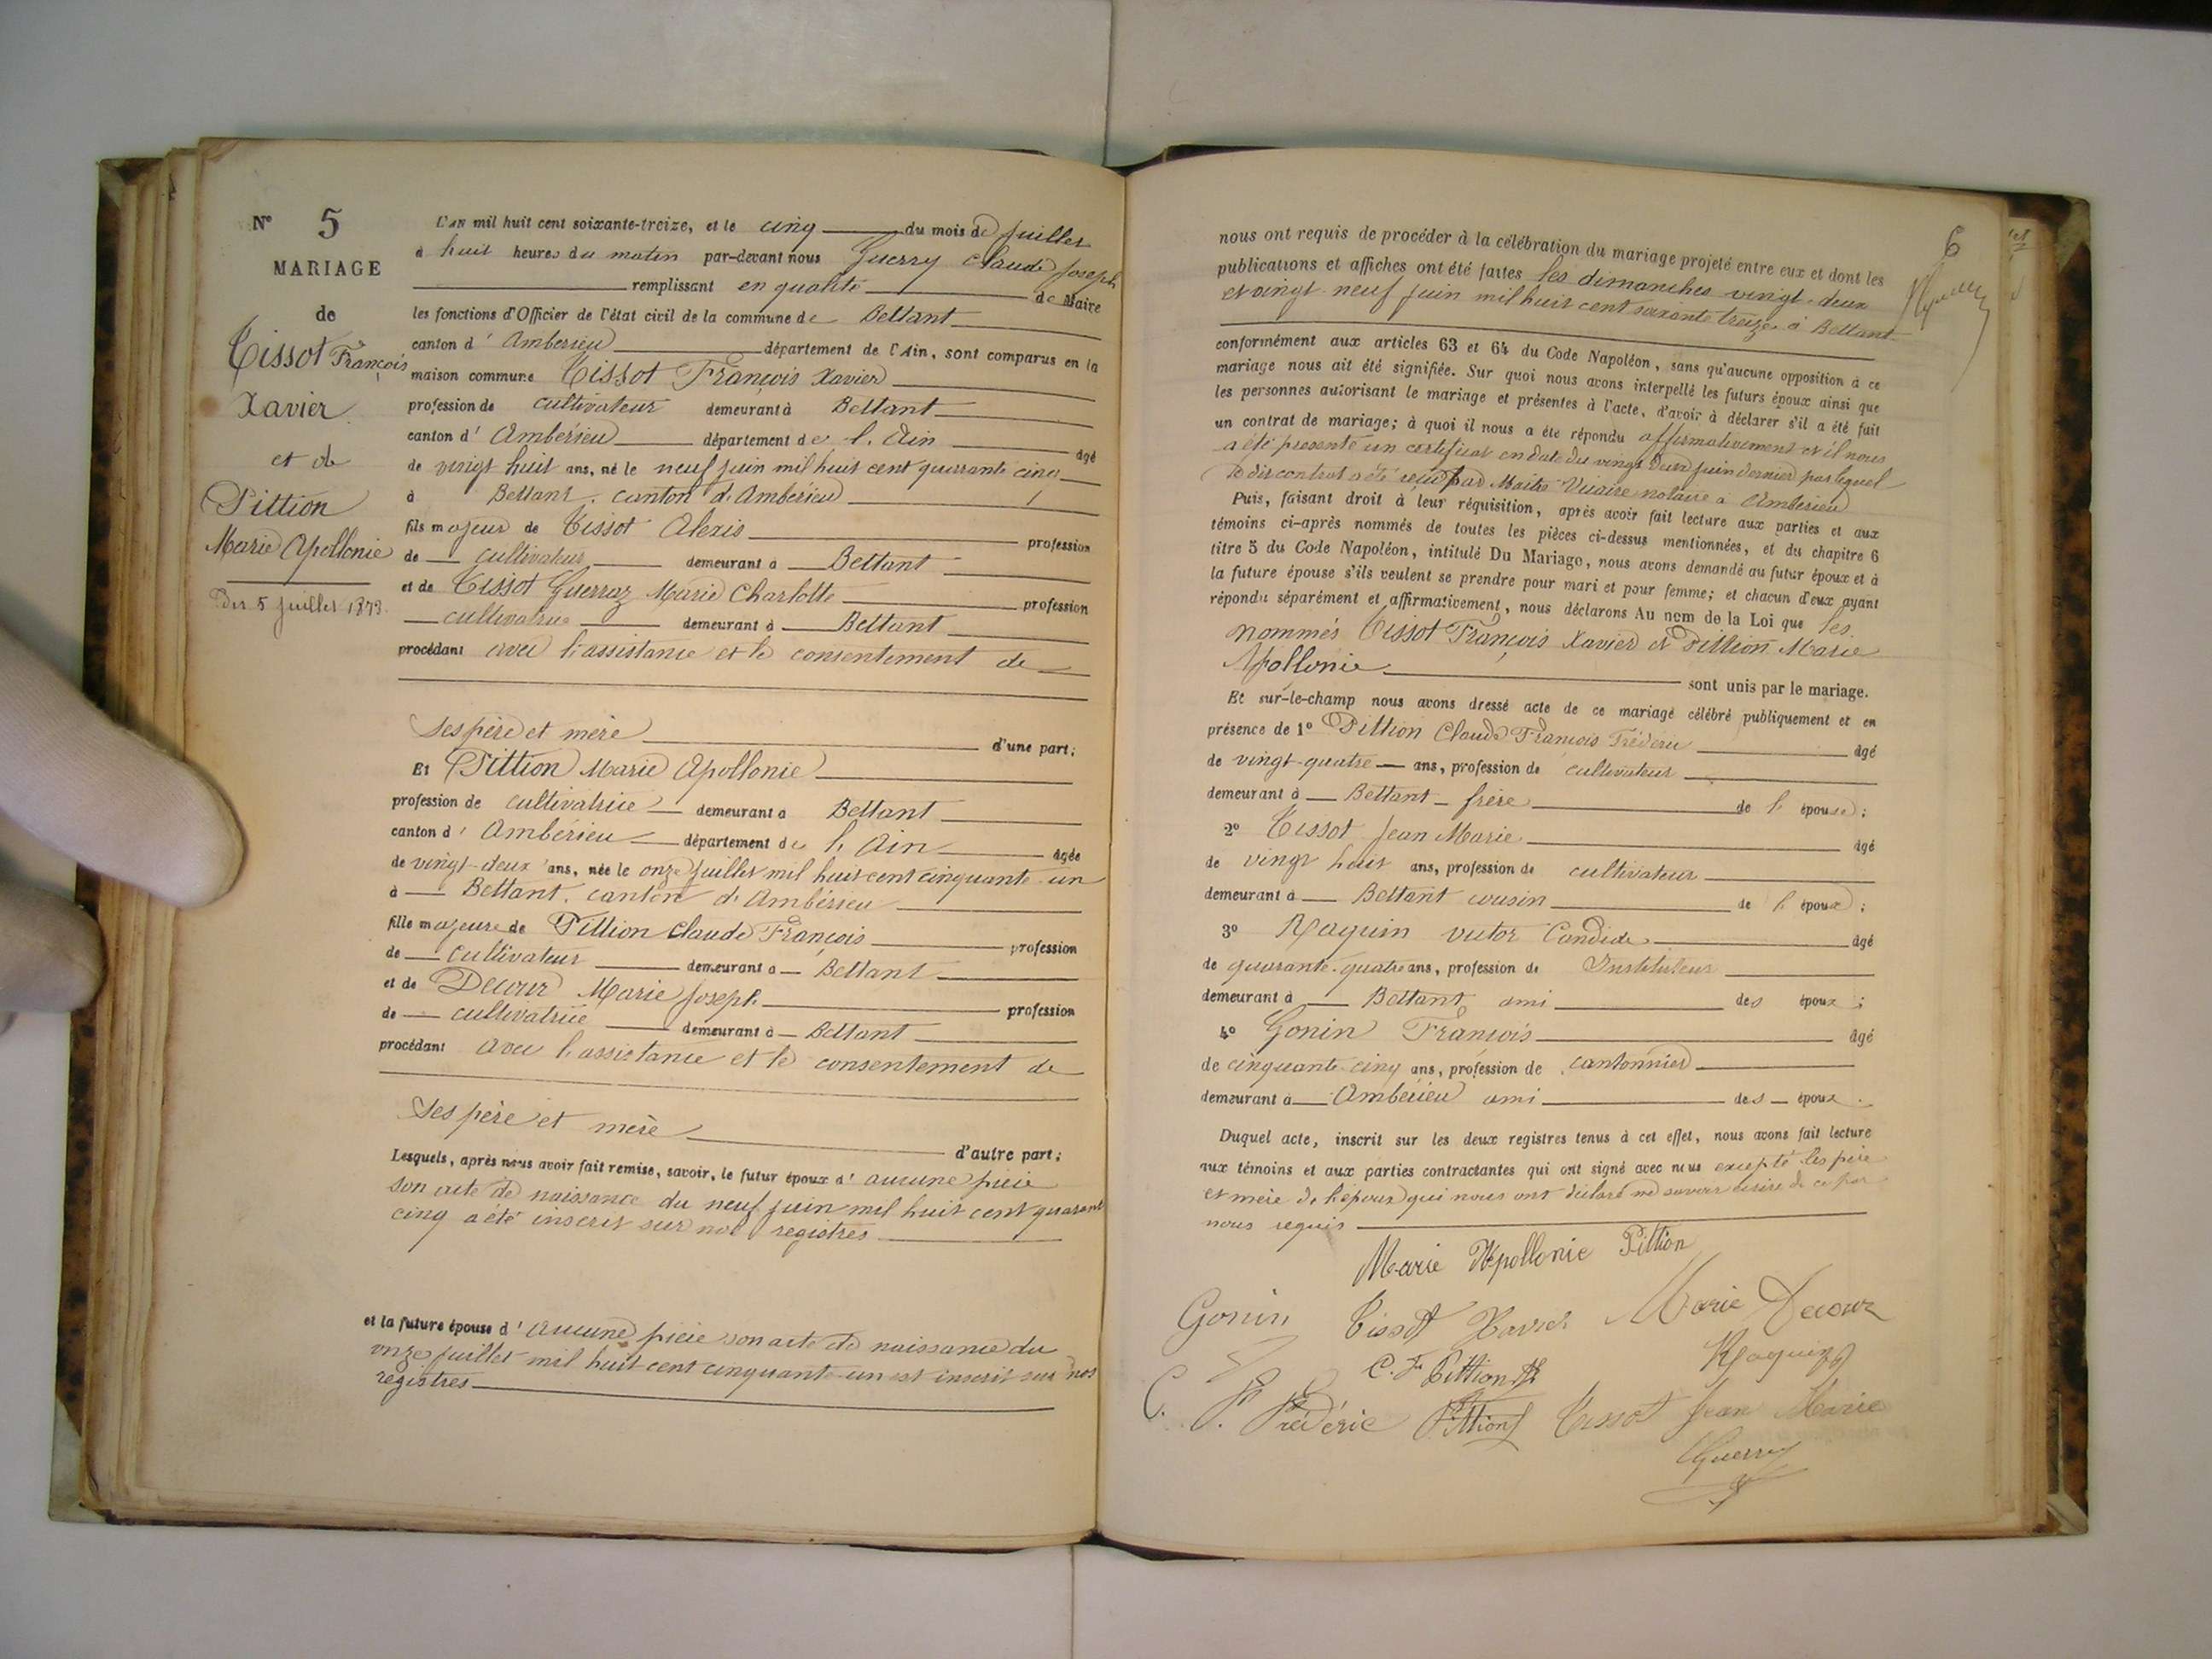 N° 5
MARIAGE
de
Tissot François
Xavier
et de
Pittion
Marie Apollonie
Du 5 juillet 1873.
L'AN mil huit cent soixante-treize, et le cinq du mois de juillet
à huit heures du matin par-devant nous Guerry Claude Joseph
remplissant en qualité de Maire
les fonctions d'Officier de l'état civil de la commune de Bettant
canton d'Ambérieu département de l'Ain, sont comparus en la
maison commune Tissot François Xavier
profession de cultivateur demeurant à Bettant
canton d'Ambérieu département de l'Ain âgé
de vingt huit ans, né le neuf juin mil huit cent quarante cinq
à Bettant. canton d'Ambérieu
fils majeur de Tissot Alexis profession
de cultivateur demeurant à Bettant
et de Tissot Guerraz Marie Charlotte profession
cultivatrice demeurant à Bettant
procédant avec l'assistance et le consentement de
Ses père et mère d'une part;
Et Pittion Marie Apollonie
profession de cultivatrice demeurant à Bettant
canton d'Ambérieu département de l'Ain âgée
de vingt-deux ans, née le onze juillet mil huit cent cinquante-un
à Bettant. canton d'Ambérieu
fille majeure de Pittion Claude François profession
de cultivateur demeurant à Bettant
et de Decour Marie Joseph profession
de cultivatrice demeurant à Bettant
procédant avec l'assistance et le consentement de
Ses père et mère d'autre part;
Lesquels, après nous avoir fait remise, savoir, le futur époux d'aucune pièce
son acte de naissance du neuf juin mil huit cent quarante
cinq a été inscrit sur nos registres
et la future épouse d'Aucune pièce son acte de naissance du
onze juillet mil huit cent cinquante-un est inscrit sur nos
registres
6
nous ont requis de procéder à la célébration du mariage projeté entre eux et dont les
publications et affiches ont été faites les dimanches vingt-deux
et vingt-neuf juin mil huit cent soixante treize à Bettant
conformément aux articles 63 et 64 du Code Napoléon, sans qu'aucune opposition à ce
mariage nous ait été signifiée. Sur quoi nous avons interpellé les futurs époux ainsi que
les personnes autorisant le mariage et présentes à l'acte, d'avoir à déclarer s'il a été fait
un contrat de mariage; à quoi il nous a été répondu affirmativement et il nous
a été présenté un certificat en date du vingt deux juin dernier par lequel
le dit contrat a été reçu par Maître Vicaire notaire à Ambérieu
Puis, faisant droit à leur réquisition, après avoir fait lecture aux parties et aux
témoins ci-après nommés de toutes les pièces ci-dessus mentionnées, et du chapitre 6
titre 5 du Code Napoléon, intitulé Du Mariage, nous avons demandé au futur époux et à
la future épouse s'ils veulent se prendre pour mari et pour femme; et chacun d'eux ayant
répondu séparément et affirmativement, nous déclarons Au nom de la Loi que les
nommés Tissot François Xavier et Pittion Marie
Apollonie sont unis par le mariage.
Et sur-le-champ nous avons dressé acte de ce mariage célébré publiquement et en
présence de 1° Pittion Claude François Frédéric âgé
de vingt-quatre ans, profession de cultivateur
demeurant à Bettant frère de l'épouse;
2° Tissot Jean Marie âgé
de vingt huit ans, profession de cultivateur
demeurant à Bettant cousin de l'époux;
3° Raquin Victor Candide âgé
de quarante-quatre ans, profession de Instituteur
demeurant à Bettant ami des époux;
4° Gonin François âgé
de cinquante-cinq ans, profession de cantonnier
demeurant à Ambérieu ami des époux.
Duquel acte, inscrit sur les deux registres tenus à cet effet, nous avons fait lecture
aux témoins et aux parties contractantes qui ont signé avec nous excepté les père
et mère de l'époux qui nous ont déclaré ne savoir écrire de ce par
nous requis
Marie Apollonie Pittion
Gonin Tissot Xavier Marie Decour
C. F. Pittion Raquin
C. F. Frédéric Pittion Tissot Jean Marie
Guerry